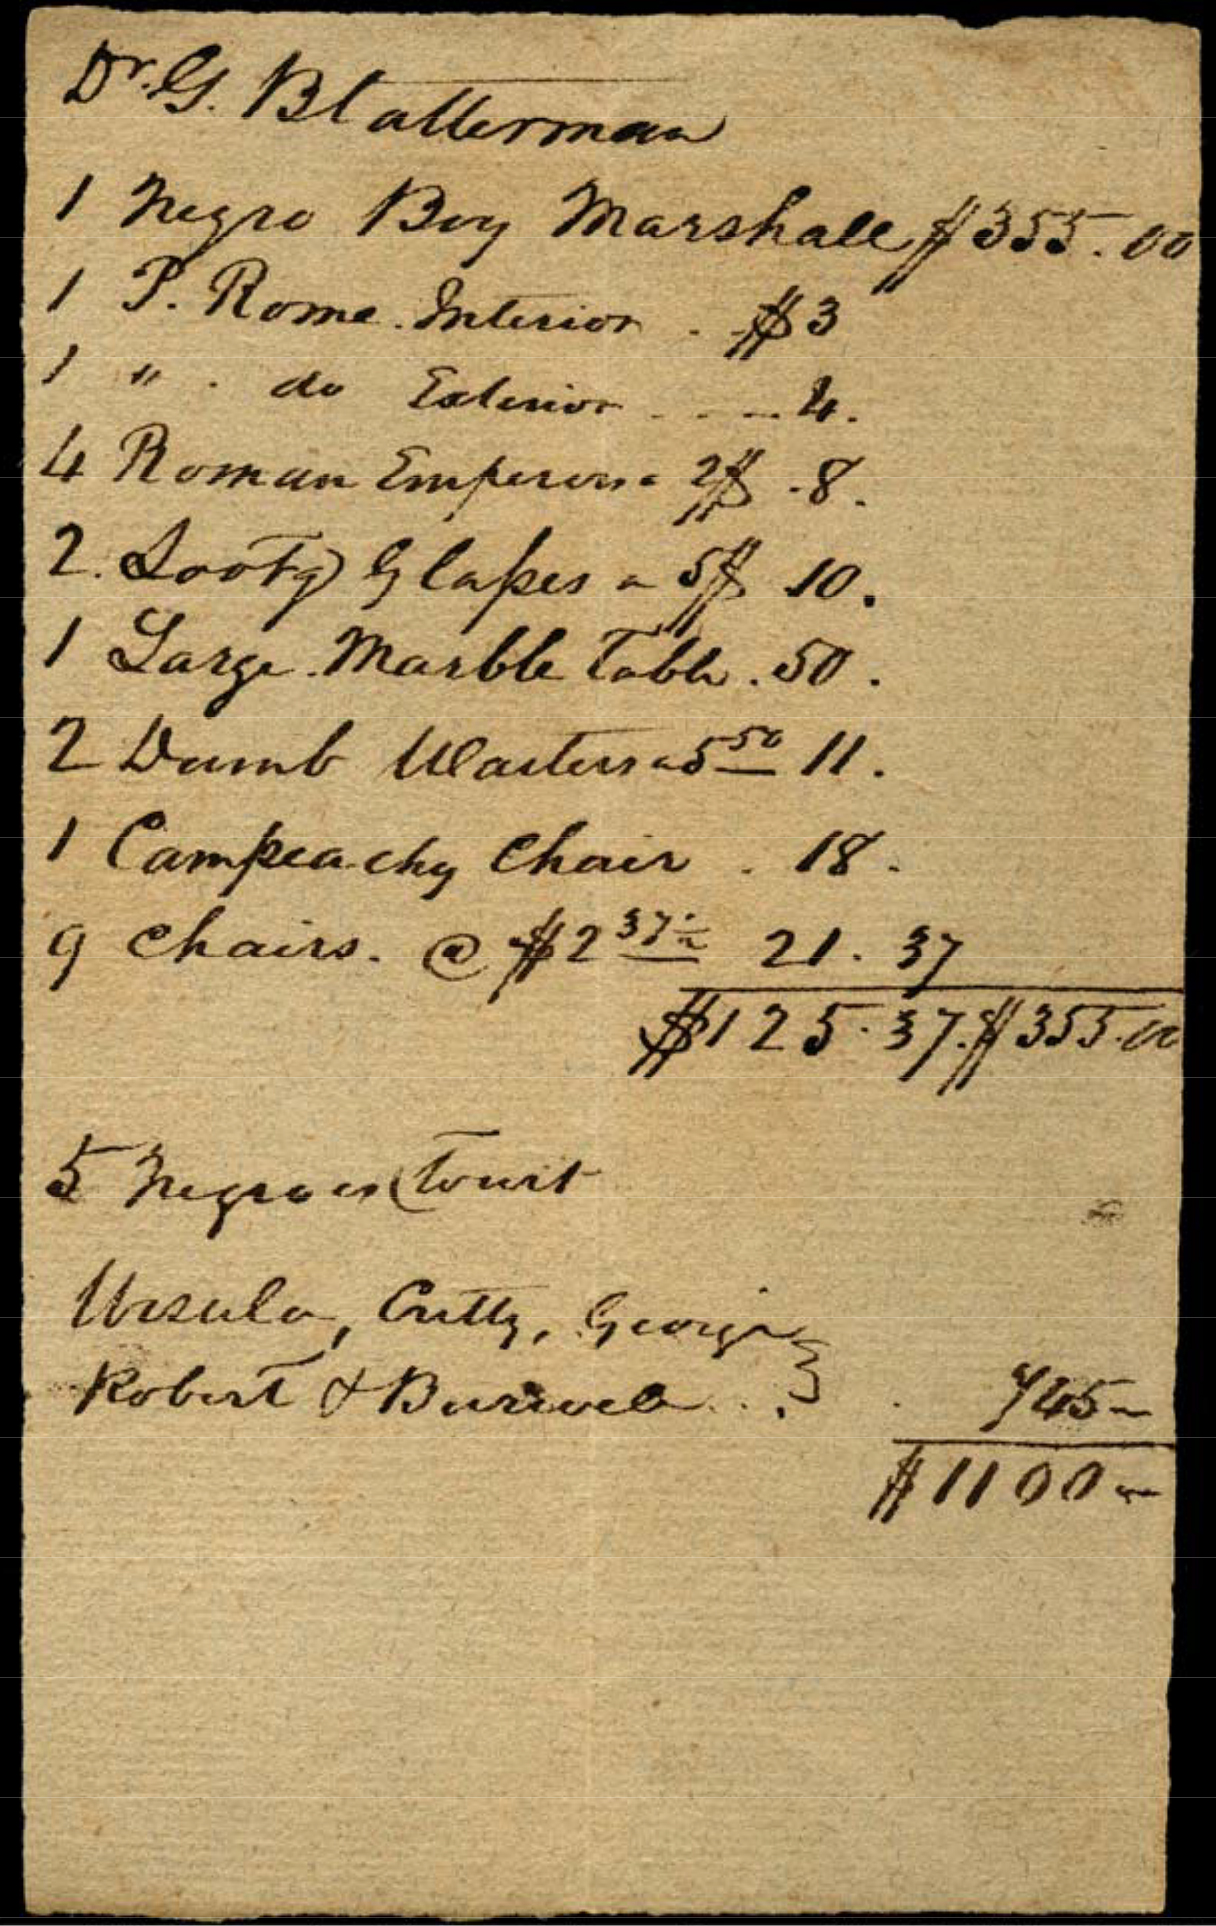 Dr. G. Blatterman
1 Negro Boy Marshall $355.00
1 P. Rome. Interior . $3
1 " . do Exterior - - - 4.
4 Roman Emperors a 2$ . 8.
2. Looky Glasses a 5$ 10.
1 Large Marble Table . 50 .
2 Dumb Waiters a 5 50 11 .
1 Campeachy Chair . 18 .
9 Chairs. @ $2 37½ 21. 37
$125.37. $355.00
5 Negroes
Ursula, Critty, George
Robert & Burwell . . . 745~
$1100~